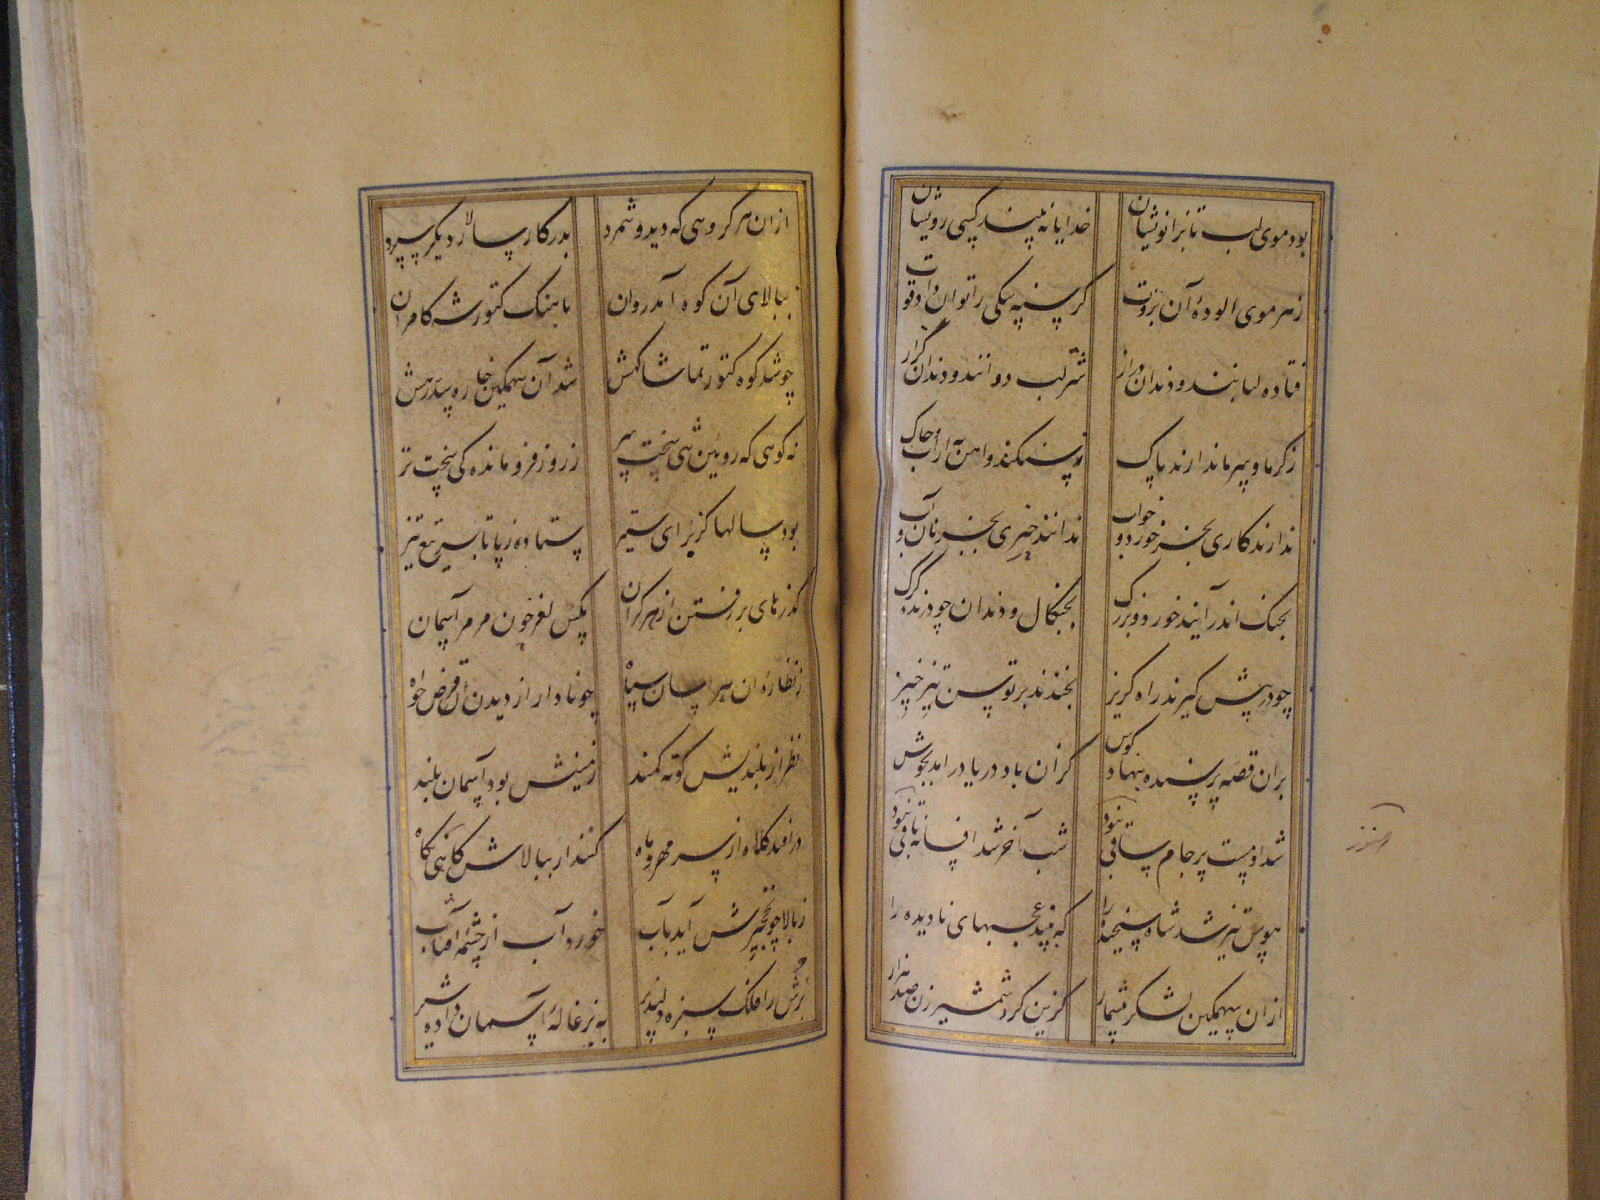 بود موی لب تا بزانوشیان خدایا نه بیند کسی رویشان
ز هر موی الودهٔ آن بروت کرسنه سکی را توان داد قوت
فتاده لبا بنند و دندان دراز شتر لب دوانند و دندان گراز
ز کرما و سرما ندارند باک نپوسند و اهن آراب و خاک
ندارند کاری بجز خورد و خواب ندانند چیزی بجز نان و آب
بجنک اندر آیند خورد و بزرک بچنکال و دندان چو درنده گرگ
چو در پیش کیرند راه کریز بخندند بر توسن تیز خیز
بران قصه پرسنده بنهاد کوس کزان باد دریا درامد بجوش
شد او مست پر جام ساقی نبود شب آخر شد افسانه باقی نبود
هوس تیز شد شاه سنجیده را که بیند عجبهای نادیده را
ازان سهمکین لشکر بیشمار کزین کرد شمشیر زن صد هزار
ازان هر کروهی که دید و شمرد بدر کار سالار دیکر سپرد
ببالای آن کوه آمد روان باهنک کتور شه کامران
چو شد کوه کتور تماشا کهش شد آن سهمکین خاره سد رهش
نه کوهی که روئین تنی سخت سر ز روز فرومانده کی سخت تر
بود سالها کز برای ستیز ستاده ز پا تا بسر تیغ تیز
کذرهای بررفتن از هر کران مکس لغز چون مرمر آسمان
ز نظارهٔ ان هراسان سپاه چو نادار از دیدن قرض خواه
نظر از بلندیش کوته کمند زمینش بود آسمان بلند
درافتد کلاه از سر مهر و ماه کنند ار ببالاش کاهی نکاه
ز بالا چو نخچیرش آید بآب خورد آب از چشمه آفتاب
بزش را فلک سبزه دلپذیر به بزغالهٔ آسمان داده شیر